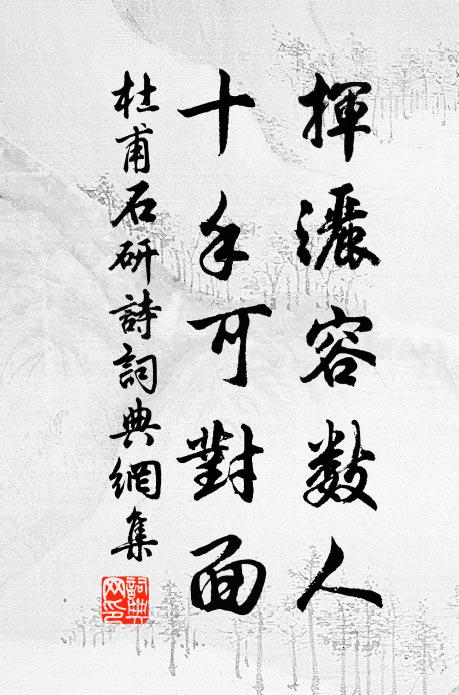 揮灑容數人
十手可對面
杜甫石研詩詞典網集
詞典網印